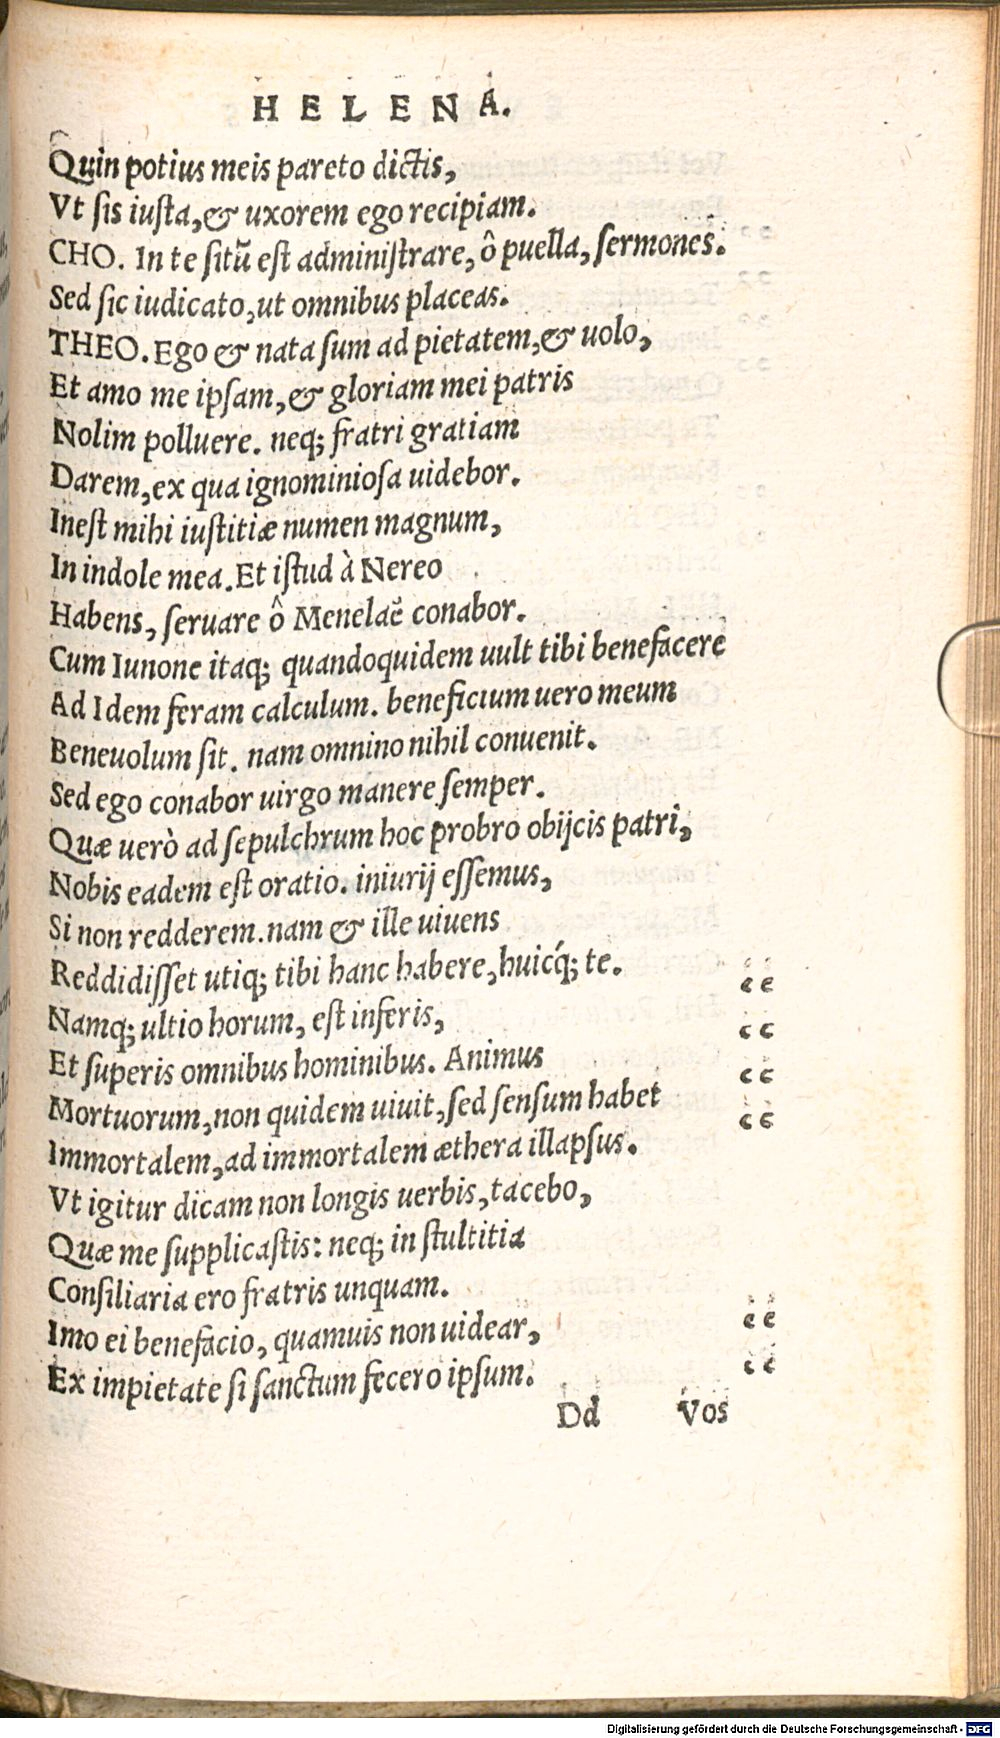 HELENA.
Quin potius meis pareto dictis,
Vt sis iusta, & uxorem ego recipiam.
CHO. In te sitũ est administrare, ô puella, sermones.
Sed sic iudicato, ut omnibus placeas.
THEO. Ego & nata sum ad pietatem, & uolo,
Et amo me ipsam, & gloriam mei patris
Nolim polluere. neq; fratri gratiam
Darem, ex qua ignominiosa uidebor.
Inest mihi iustitiæ numen magnum,
In indole mea. Et istud à Nereo
Habens, seruare ô Menelaẽ conabor.
Cum Iunone itaq; quandoquidem uult tibi benefacere
Ad Idem feram calculum. beneficium uero meum
Beneuolum sit. nam omnino nihil conuenit.
Sed ego conabor uirgo manere semper.
Quæ uerò ad sepulchrum hoc probro obijcis patri,
Nobis eadem est oratio. iniurij essemus,
Si non redderem. nam & ille uiuens
Reddidisset utiq; tibi hanc habere, huicq́; te. “
Namq; ultio horum, est inferis, “
Et superis omnibus hominibus. Animus “
Mortuorum, non quidem uiuit, sed sensum habet “
Immortalem, ad immortalem æthera illapsus.
Vt igitur dicam non longis uerbis, tacebo,
Quæ me supplicastis: neq; in stultitia
Consiliaria ero fratris unquam.
Imo ei benefacio, quamuis non uidear, “
Ex impietate si sanctum fecero ipsum. “
Dd Vos
Digitalisierung gefördert durch die Deutsche Forschungsgemeinschaft - DFG